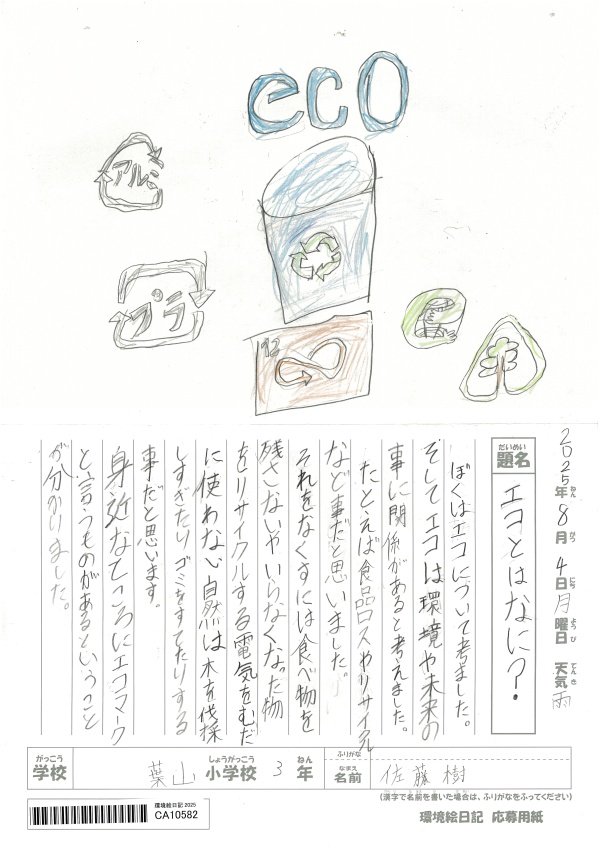 eco
アルミ
プラ
192
2025年ねん 8月がつ 4日にち 月曜日ようび 天気てんき 雨
だいめい
題名
エコとはなに?
ぼくはエコについて考ました。
そしてエコは環境や未来の
事に関係があると考えました。
たとえば食品ロスやリサイクル
など事だと思いました。
それをなくすには食べ物を
残さないやいらなくなった物
をリサイクルする電気をむだ
に使わない自然は木を伐採
しすぎたりゴミをすてたりする
事だと思います。
身近なところにエコマーク
と言うものがあるということ
が分かりました。
がっこう
学校
葉山 小学校しょうがっこう 3年ねん
ふりがな
なまえ
名前
佐藤 樹
(漢字で名前を書いた場合は、ふりがなをふってください)
環境絵日記 2025
CA10582
環境絵日記 応募用紙